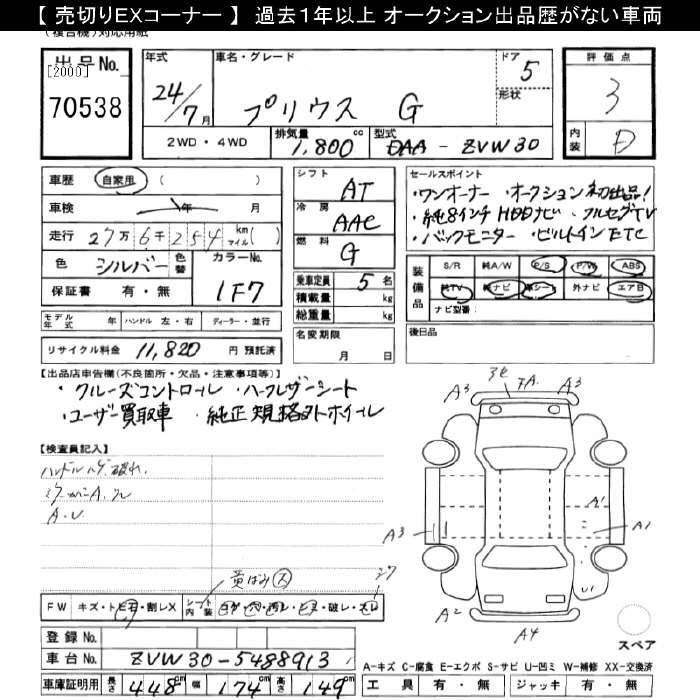 【 売切りEXコーナー 】 過去1年以上 オークション出品歴がない車両
出品No. [2000] 70538
年式 24/7月
車名・グレード プリウス G
ドア 5
形状
2WD・4WD 排気量 1,800cc 型式 DAA - ZVW30
評価点 3
内装 D
車歴 自家用 ( )
車検 年 月
走行 27万6千254 km マイル( )
色 シルバー 色替 カラーNo. 1F7
保証書 有・無
モデル年式 年 ハンドル 左・右 ディーラー・並行
リサイクル料金 11,820 円 預託済
シフト AT
冷房 AAC
燃料 G
乗車定員 5 名
積載量 kg
総重量 kg
名変期限 月 日
セールスポイント
・ワンオーナー ・オークション初出品!
・純8インチHDDナビ ・フルセグTV
・バックモニター ・ビルトインETC
装備品 S/R 純A/W P/S P/W ABS
純TV 純ナビ 革シート 外ナビ エアB
ナビ型番:
後日品
【出品店申告欄(不良箇所・欠品・注意事項等)】
・クルーズコントロール ・ハーフレザーシート
・ユーザー買取車 ・純正規格外ホイール
【検査員記入】
ハンドルハゲ破れ.
A.U
黄ばみ ス
FW キズ・トビ石・割レX シート内装
破レ・スレ
登録No.
車台No. ZVW30-5488913
車庫証明用 長さ 448cm 幅 174cm 高さ 149cm
A3 A3
A3 A1 A1
A2 A4
スペア
A-キズ C-腐食 E-エクボ S-サビ U-凹ミ W-補修 XX-交換済
工具 有・無 ジャッキ 有・無